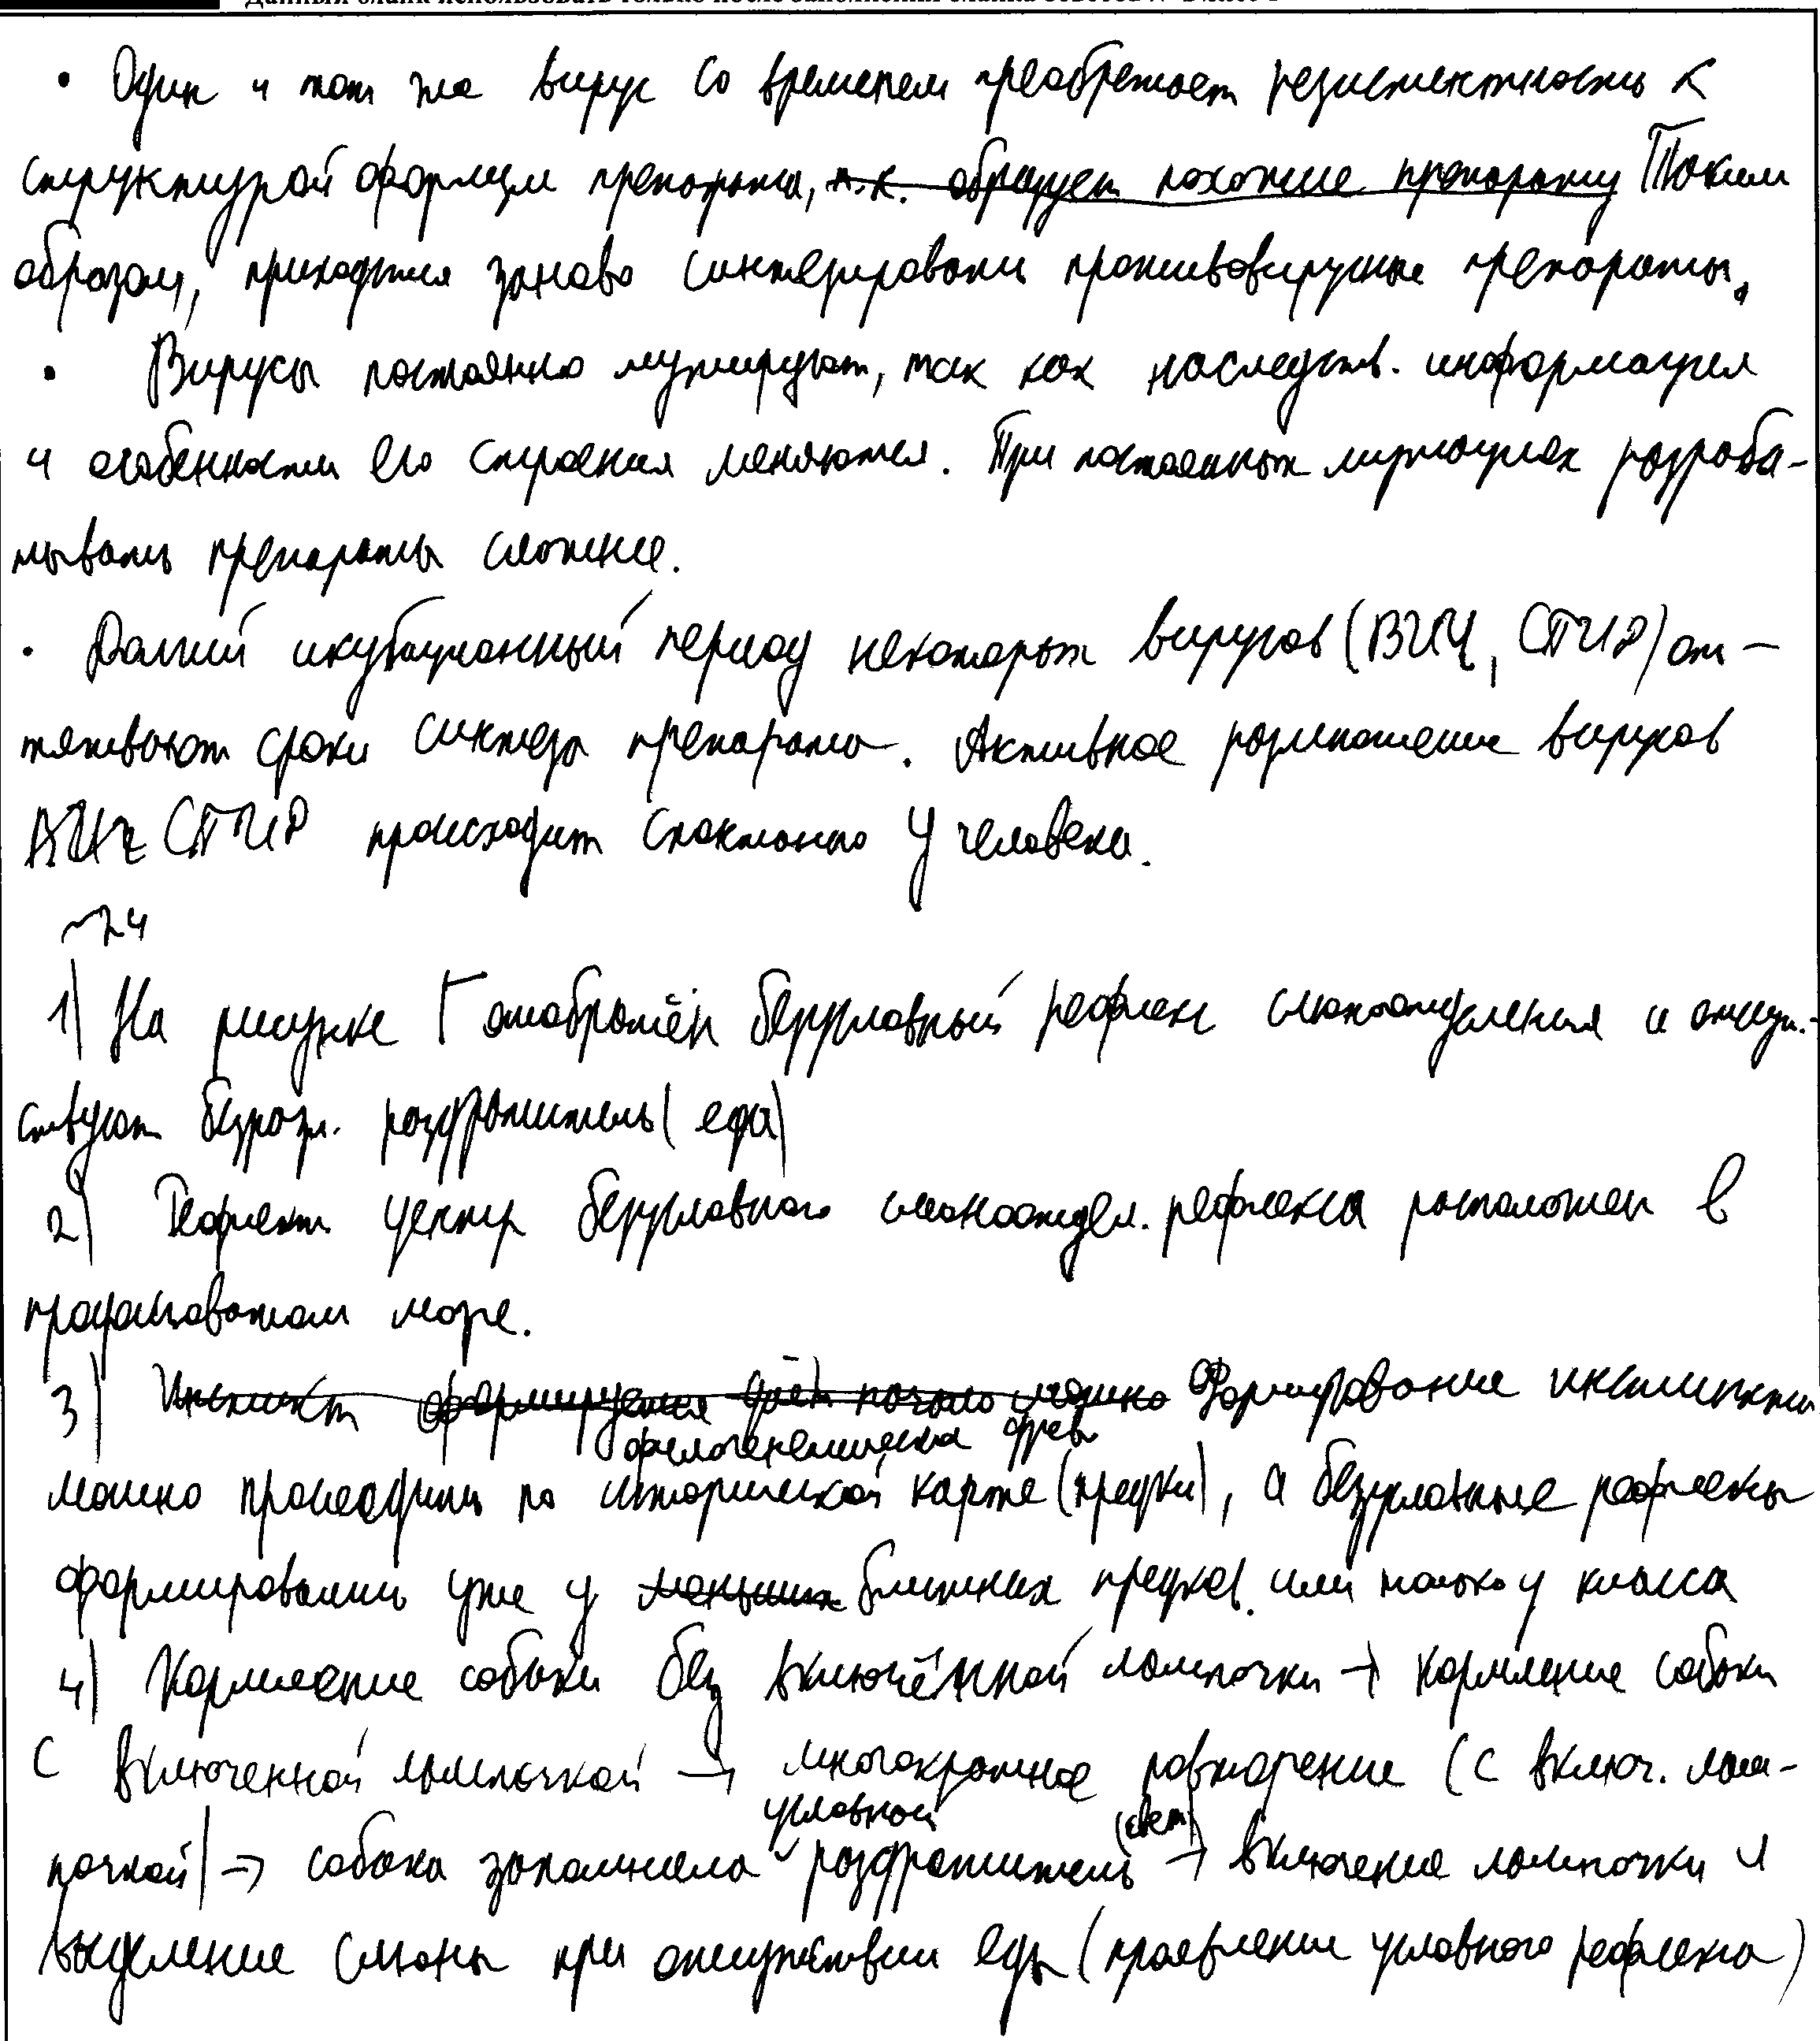 • Один и тот же вирус со временем преобретает резистентность к
структурой формулы препарата, т.к. образует похожие препарату Таким
образом, приходится заново синтезировать противовирусные препараты.
• Вирусы постоянно мутируют, так как наследств. информация
и особенности его строения меняются. При постоянных мутациях разраба-
тывать препараты сложнее.
• Долгий инкубационный период некоторых вирусов (ВИЧ, СПИД) от-
тягивают сроки синтеза препарата. Активное размножение вирусов
СПИД происходит спонтанно у человека.
~24
1) На рисунке Г отображён безусловный рефлекс слюноотделения и отсут-
ствует безразл. раздражитель (еда)
2) Рефлект. центр безусловного слюноотдел. рефлекса расположен в
продолговатом мозге.
3) Инстинкт формируется даёт начало можно Формирование инстинкта
филогенетическа древ
можно проследить по исторической карте (предки), а безусловные рефлексы
формировались уже у меньших ближних предков. или только у класса
4) Кормление собаки без включённой лампочки → кормление собаки
с включенной лампочкой → многократное повторение (с включ. лам-
условной (свет)
почкой) → собака запомнила раздражитель → включение лампочки и
выделение слюны при отсутствии еды (проявление условного рефлекса)